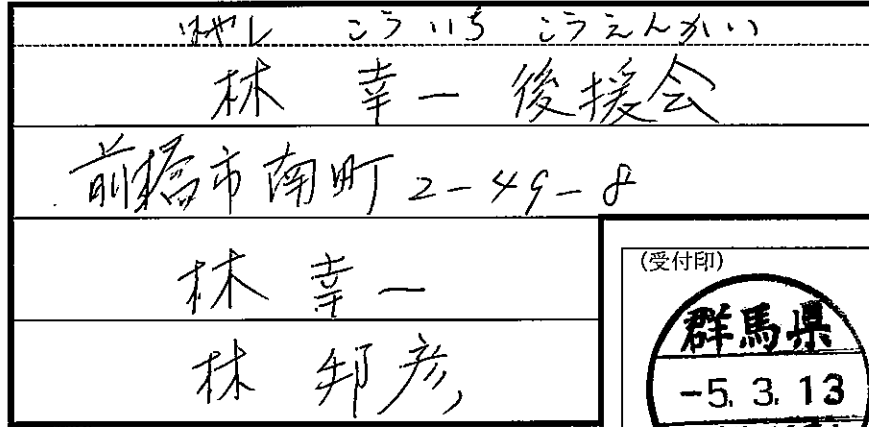 はやし こういち こうえんかい
林 幸一 後援会
前橋市南町2-49-8
林 幸一
林 邦彦
(受付印)
群馬県
-5.3.13